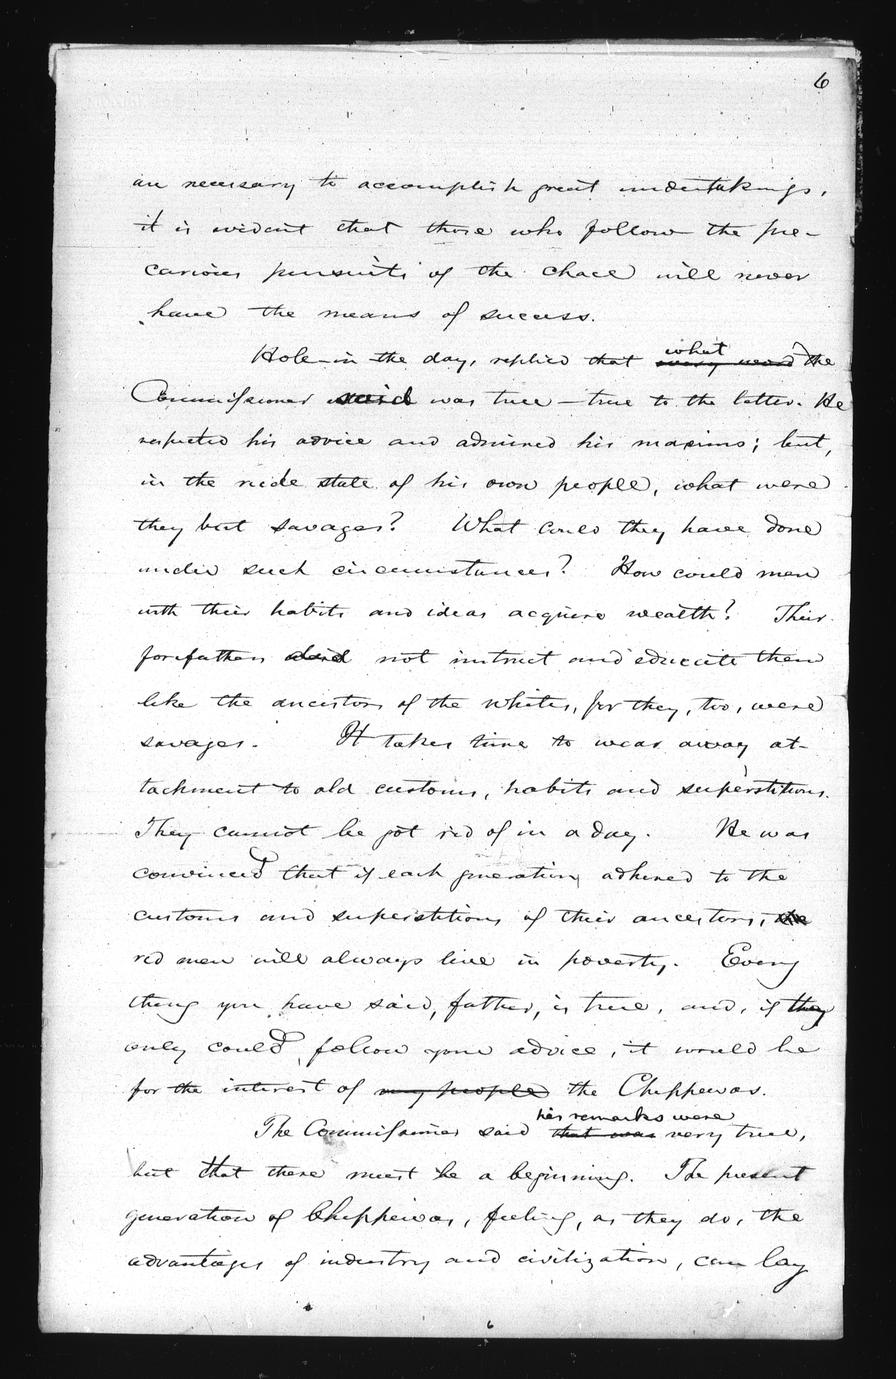 6
are necessary to accomplish great undertakings,
it is evident that those who follow the pre-
carious pursuits of the chace will never
have the means of success.
Hole-in-the day, replied that what the
Commissioner said was true – true to the letter. He
respected his advice and admired his maxims; but,
in the rude state of his own people, what were
they but savages? What could they have done
under such circumstances? How could men
with their habits and ideas acquire wealth? Their
forefathers did not instruct and educate them
like the ancestors of the whites, for they, too, were
savages. It takes time to wear away at-
tachment to old customs, habits and superstitions.
They cannot be got rid of in a day. He was
convinced that if each generation adhered to the
customs and superstitions of their ancestors, the
red men will always live in poverty. Every
thing you have said, father, is true, and, if they
only could follow your advice, it would be
for the interest of my people the Chippewas.
The Commissioner said that was his remarks were very true,
but that there must be a beginning. The present
generation of Chippewas, feeling, as they do, the
advantages of industry and civilization, can lay
6